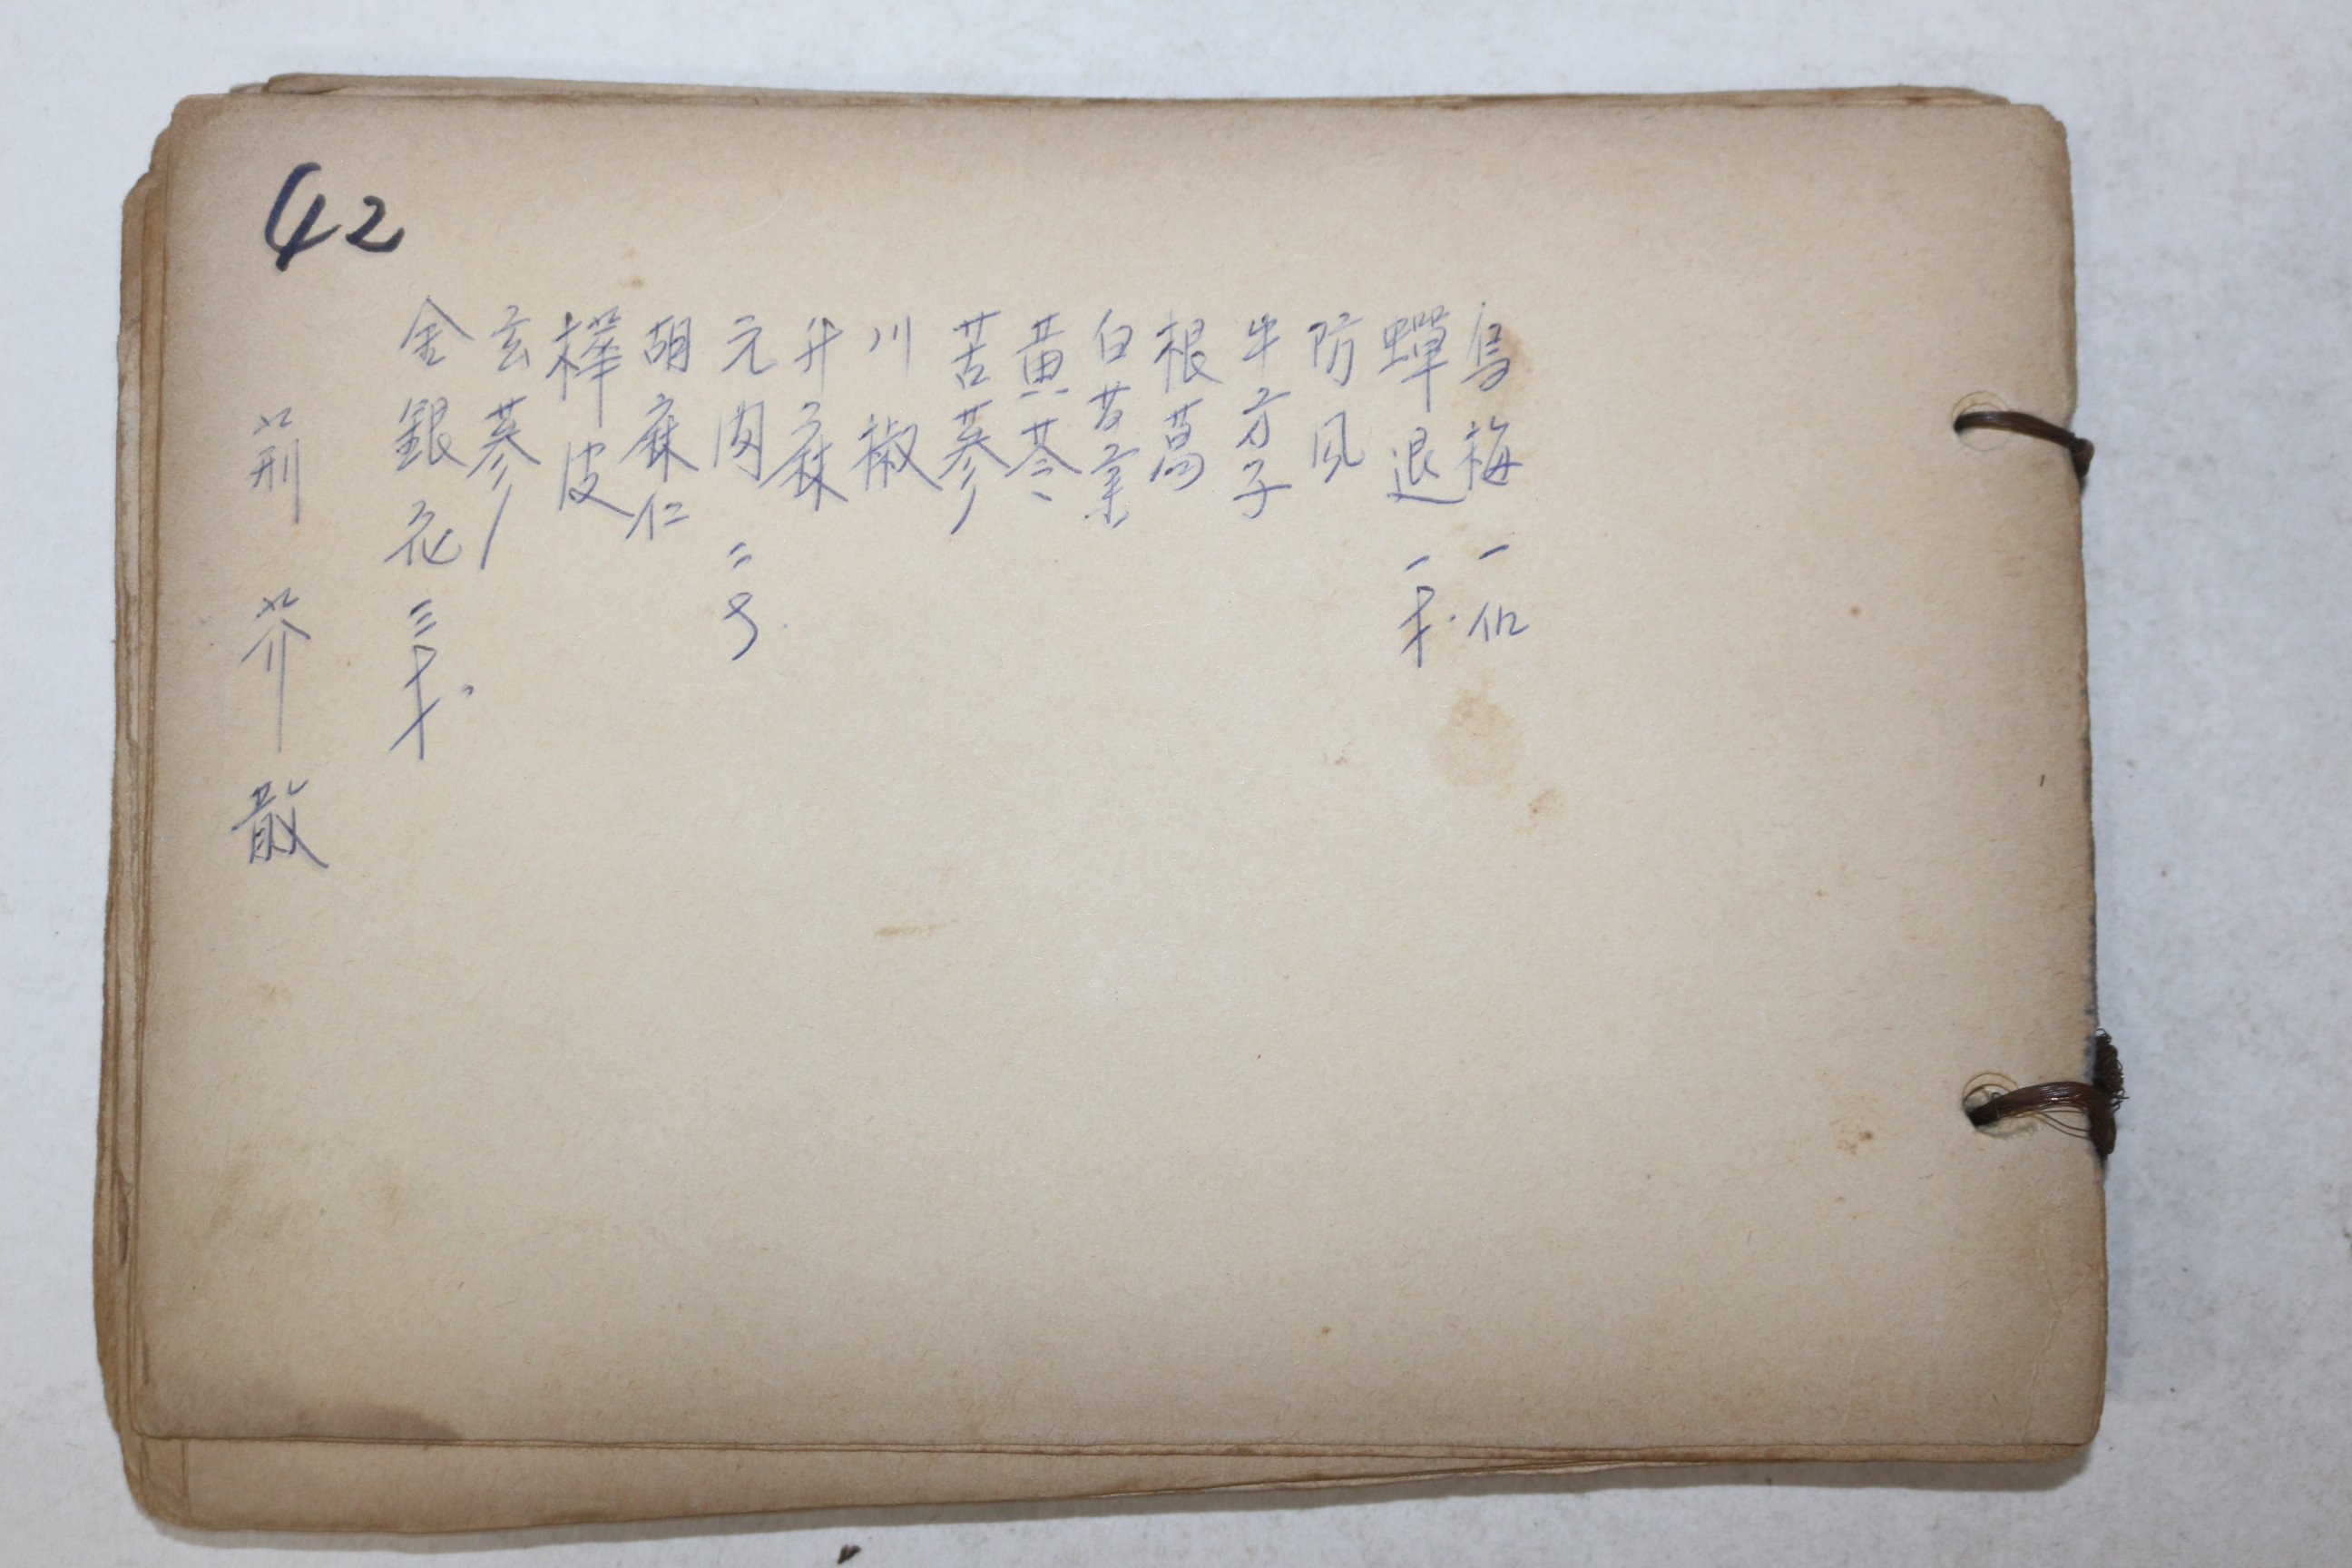 42
荊芥散
金銀花 三才.
玄蔘
樺皮
胡麻仁
元肉 二
升麻
川椒
苦蔘
黃芩
白
根葛
牛方子
防风
蟬退 一才.
烏梅 一